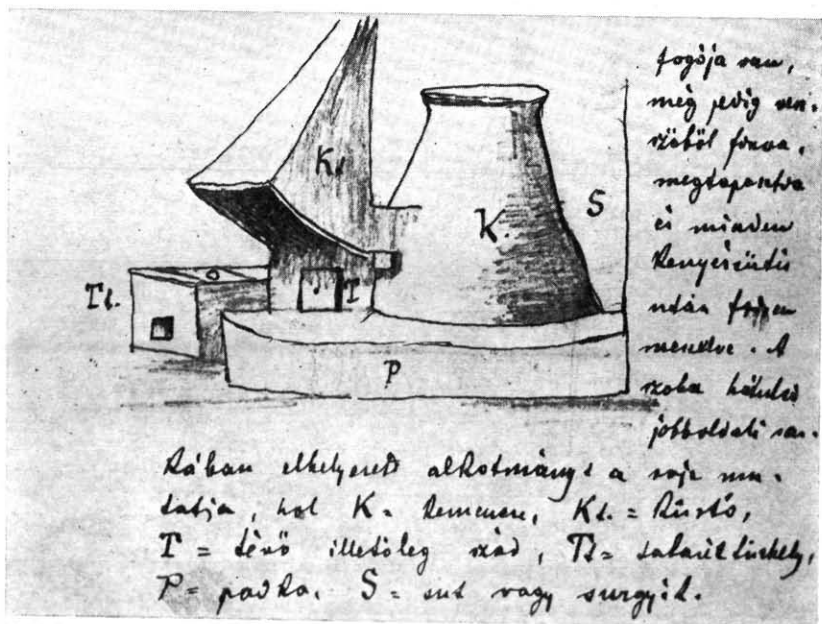 fogója van,
még pedig ven-
szőből fonva,
megtapasztva
és minden
kenyérsütés
után
meszelve. A
szoba hátulsó
jobboldali sar-
Kt.
K.
S
Tt.
T
P
kában elhelyezett alkotmányt a rajz mu-
tatja, hol K = kemence, Kt. = kürtő,
T = tévő illetőleg szád, Tt = takaréktűzhely,
P = padka. S = sut vagy surgyik.